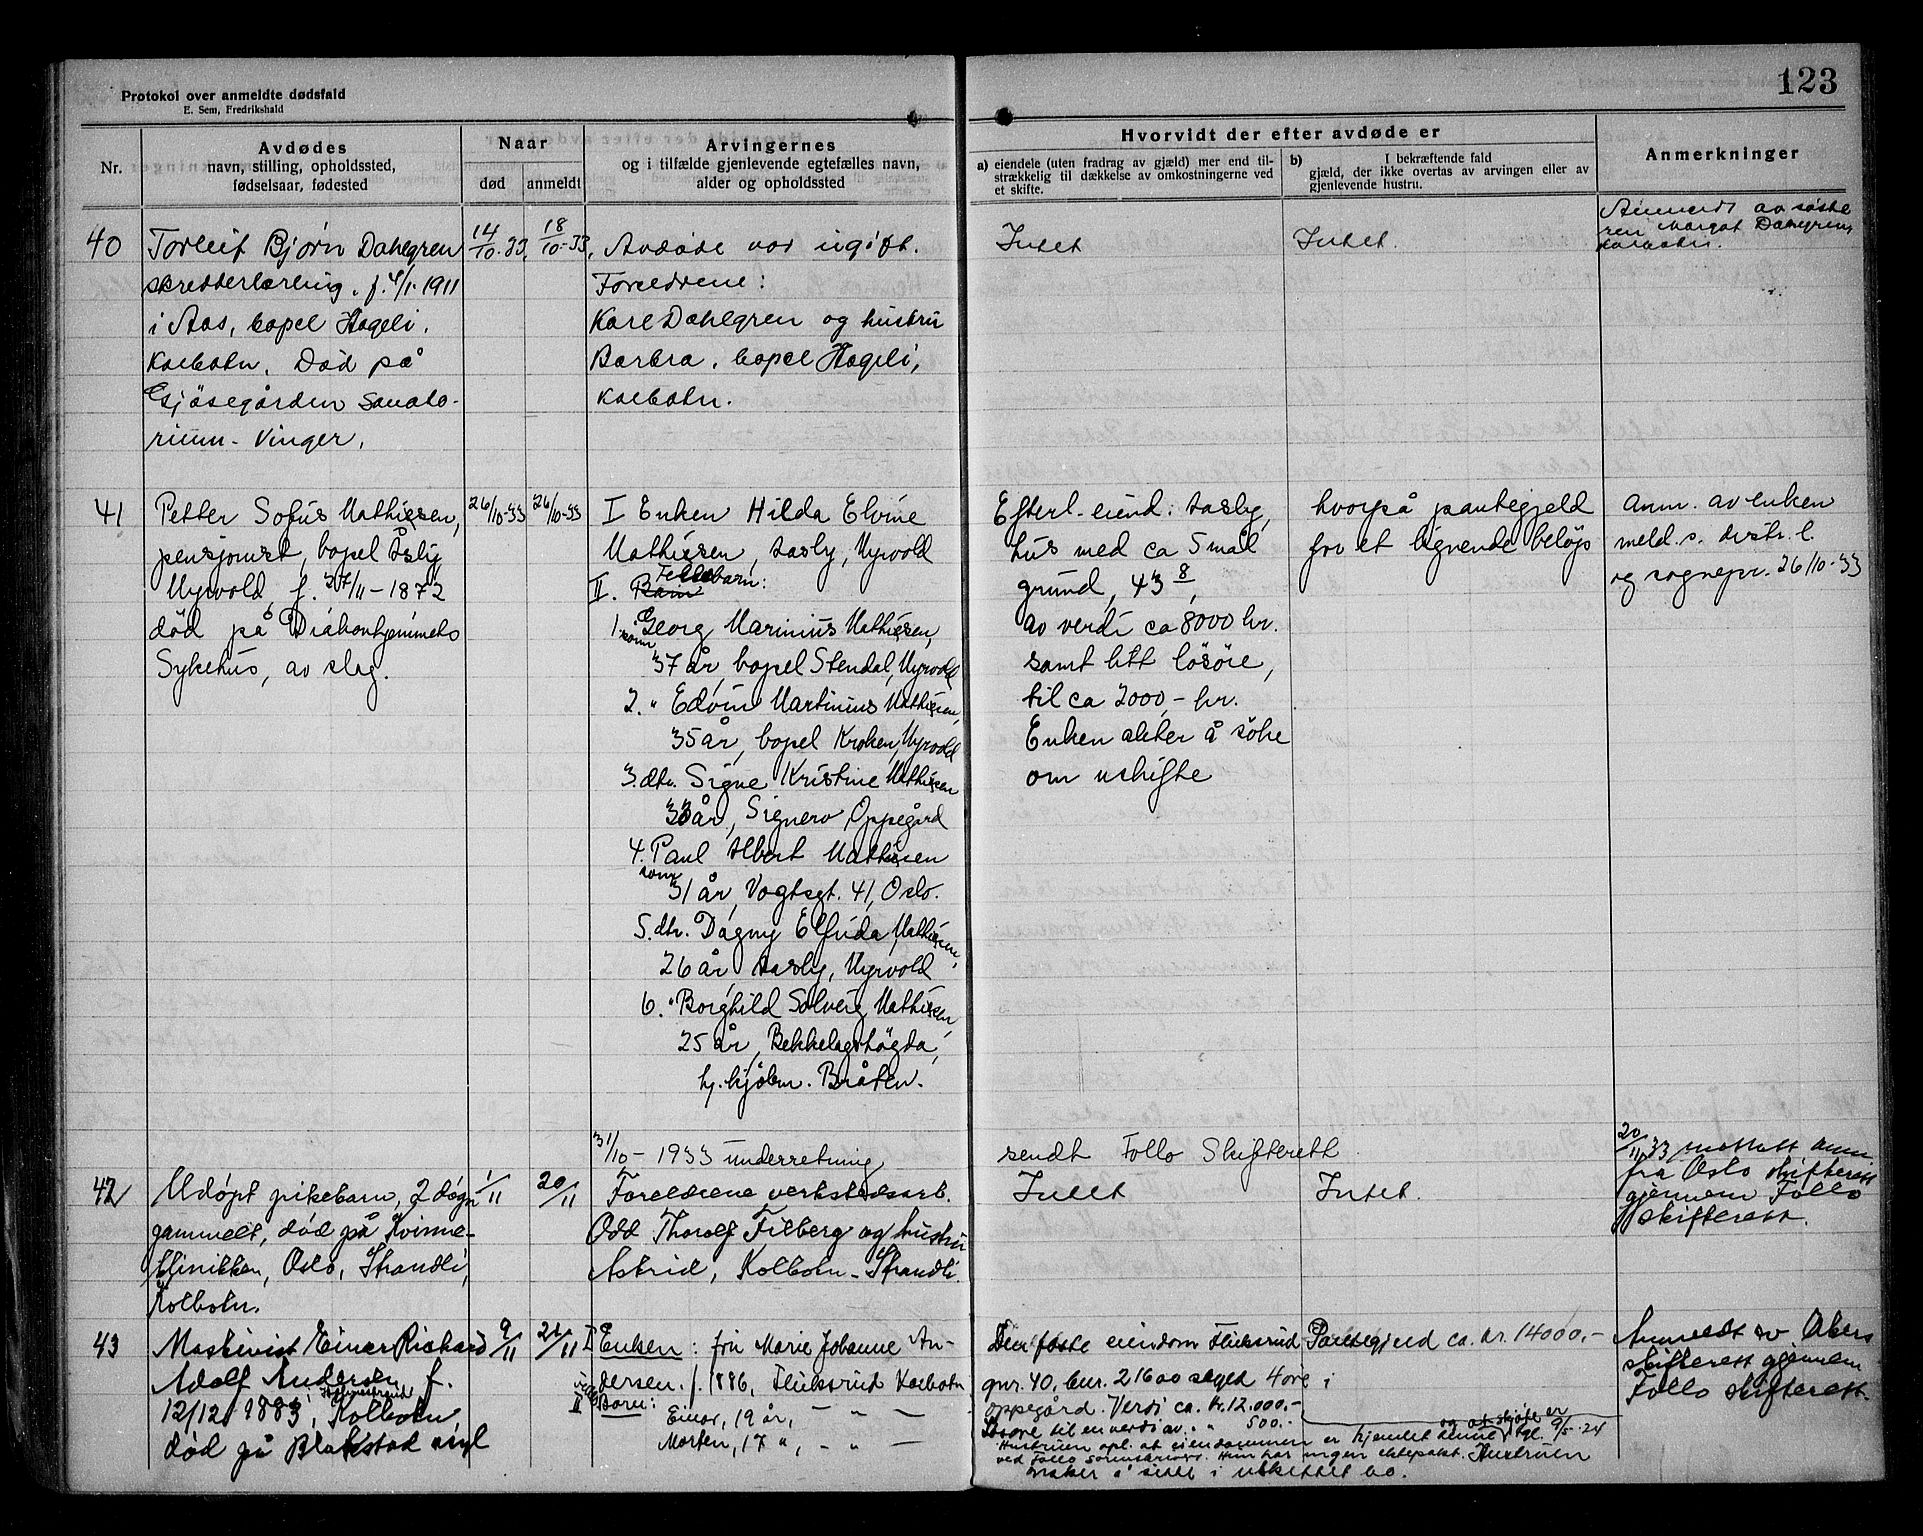 123
Protokol over anmeldte dødsfald
E. Sem, Fredrikshald
Nr.
Avdødes
navn, stilling, opholdssted,
fødselsaar, fødested
Naar
død
anmeldt
Arvingernes
og i tilfælde gjenlevende egtefælles navn,
alder og opholdssted
Hvorvidt der efter avdøde er
a) eiendele (uten fradrag av gjæld) mer end til-
strækkelig til dækkelse av omkostningerne ved
et skifte.
b) I bekræftende fald
gjæld, der ikke overtas av arvingen eller av
gjenlevende hustru.
Anmerkninger
40
Torleif Bjørn Dahlgren
skredderlærling. f. 4/1-1911
i Aas, bopel Hageli,
Kolbotn. Død på
Gjøsegården Sanato-
rium - Vinger.
14/10-33.
18/10-33.
Avdøde var ugift.
Foreldrene:
Kare Dahlgren og hustru
Barbra, bopel Hageli,
Kolbotn.
Intet
Intet.
Anmeldt av søste
ren Margot Dahlgren,
Kolbotn.
41
Petter Sofus Mathisen,
pensjonist, bopel Åsly
Myrvold, f. 27/11-1872
død på Diakonhjemmets
Sykehus, av slag.
26/10-33
26/10-33
I Enken Hilda Elvine
Mathisen, Aasly, Myrvold
II. Barn Fellesbarn:
1. sønn Georg Marinius Mathisen,
37 år, bopel Stendal, Myrvold
2. " Edvin Martinius Mathisen,
35 år, bopel Kroken, Myrvold
3. dtr. Signe Kristine Mathisen
33 år, Signero, Oppegård
4. sønn Paul Albert Mathisen
31 år, Vogtsgt. 41, Oslo.
5. dtr. Dagny Elfrida Mathisen,
26 år Aasly, Myrvold
6. " Borghild Solveig Mathisen,
25 år, Bekkelagshøgda,
hj. kjøbm. Bråten.
Efterl. eiend: Aasly,
hus med ca 5 mål
grund, 43 8,
av verdi ca 8000 kr.
samt litt løsøre,
til ca 2000,- kr.
Enken akter å søke
om uskifte
hvorpå pantegjeld
for et lignende beløp
Anm. av enken
meld. s. distr. l.
og sognepr. 26/10-33
31/10-1933 underretning sendt Follo Skifterett
42
Udøpt pikebarn, 2 døgn
gammelt, død på Kvinne-
klinikken, Oslo, Strandli,
Kolbotn.
1/11
20/11
Foreldrene verkstedsarb.
Odd Thorolf Filberg og hustru
Astrid, Kolbotn - Strandli.
Intet
Intet.
20/11 33 mottatt anm
fra Oslo skifterett
gjennem Follo
skifterett.
43
Maskinist Einer Richard
Adolf Andersen f.
12/12 1883, Kolbotn,
død på Blakstad asyl
9/11
21/11
I Enken: fru Marie Johanne An-
dersen. f. 1886, Fluksrud Kolbotn
II Barn:
Einar, 19 år, - " -
Morten, 17 ", - " -
Den faste eiendom Fluksrud
gnr. 40, bnr. 216
oppegård. Verdi ca. kr. 12.000.-
Løsøre til en verdi av. " 500.-
Hustruen opl. at eiendommen er hjemlet denne
ved Follo sorenskriveri. Hun har ingen ektepakt. Hustruen
ønsker å sitte i uskiftet bo.
Pantegjeld ca. kr. 14000.-
Anmeldt av Akers
skifterett gjennem
Follo skifterett.